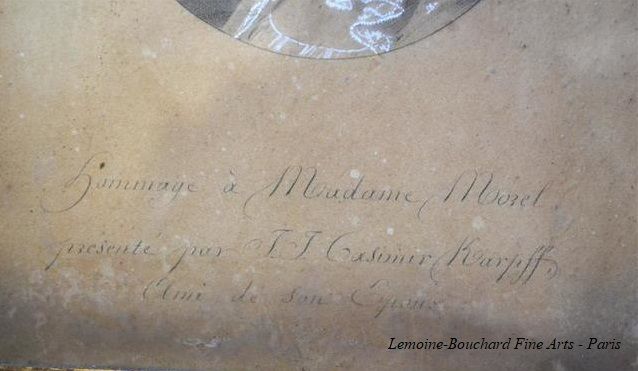 Hommage à Madame Morel
presenté par J. J. Casimir Karpff,
Ami de son Epoux
Lemoine-Bouchard Fine Arts - Paris